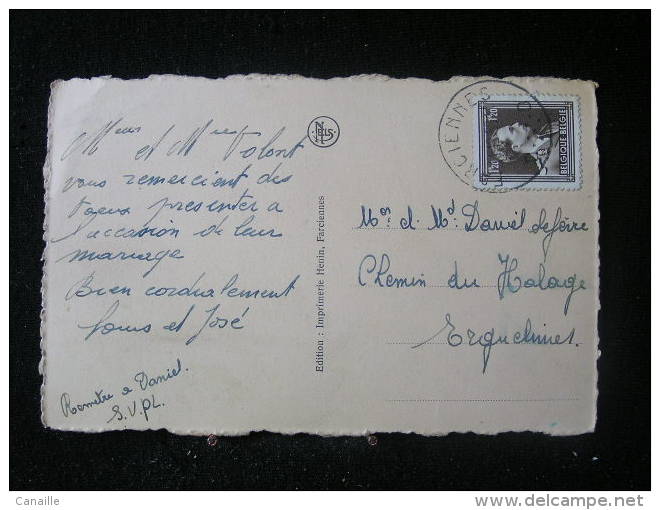 Mrs et Mme Volont
vous remercient des
voeux presenter a
l'occasion de leur
mariage
Bien cordialement
Louis et José
Remetre a Daniel.
S.V.PL.
NELS
Edition : Imprimerie Henin, Farciennes
FARCIENNES
1F20
1F20
BELGIQUE BELGIE
Mr. et Md. Daniel
Chemin du Halage
Erquelines.
Canaille
delcampe.net